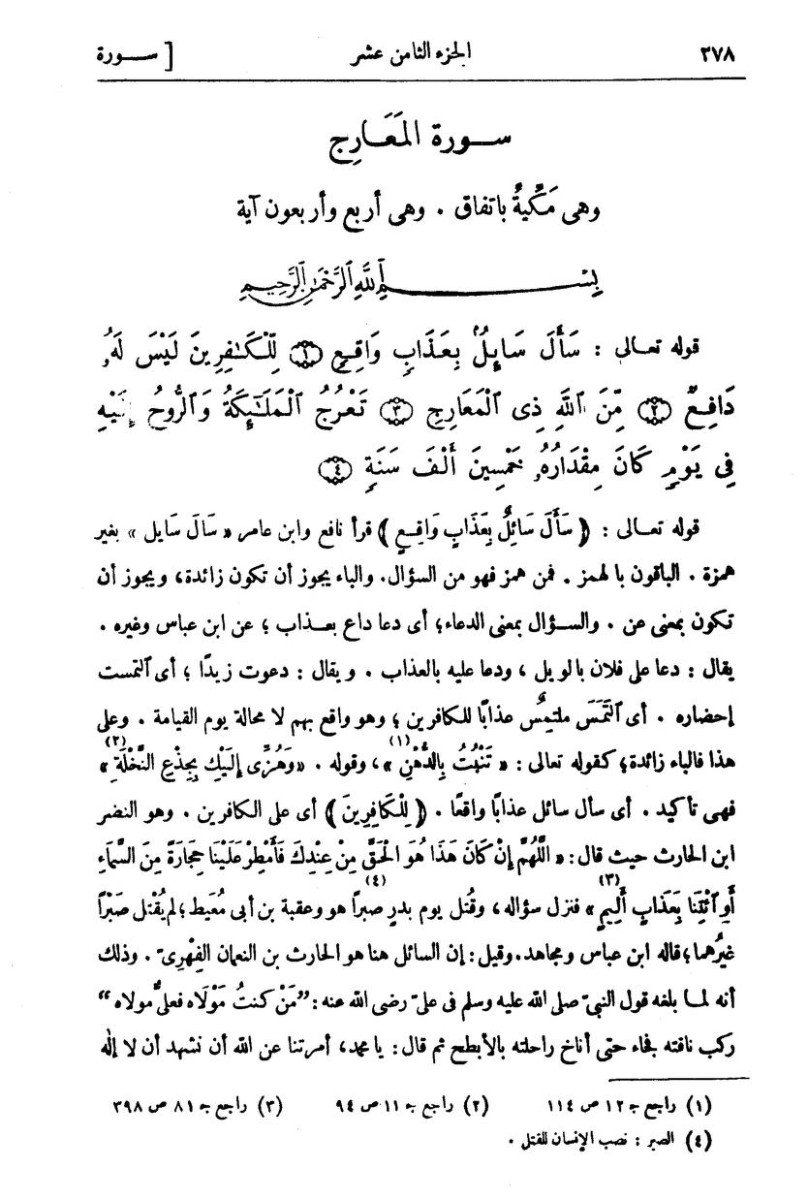 ٢٧٨ الجزء الثامن عشر [ ســـورة
ســـورة المَعَـارِج
وهى مَكّيةٌ باتفاق . وهى أربع وأربعون آية
بِسْـــمِ ٱللَّهِ ٱلرَّحْمَٰنِ ٱلرَّحِيمِ
قوله تعـالى : سَأَلَ سَآئِلُۢ بِعَذَابٍ وَاقِعٍ ﴿١﴾ لِّلْكَـٰفِرِينَ لَيْسَ لَهُۥ
دَافِعٌ ﴿٢﴾ مِّنَ ٱللَّهِ ذِى ٱلْمَعَارِجِ ﴿٣﴾ تَعْرُجُ ٱلْمَلَـٰٓئِكَةُ وَٱلرُّوحُ إِلَيْهِ
فِى يَوْمٍ كَانَ مِقْدَارُهُۥ خَمْسِينَ أَلْفَ سَنَةٍ ﴿٤﴾
قوله تعـالى : ﴿ سَأَلَ سَائِلٌ بِعَذَابٍ وَاقِعٍ ﴾ قرأ نافع وابن عامر « سَالَ سَايل » بغير
همزة . الباقون بالهمز . فمن همز فهو من السؤال. والباء يجوز أن تكون زائدة، ويجوز أن
تكون بمعنى عن . والســؤال بمعنى الدعاء؛ أى دعا داع بعــذاب ؛ عن ابن عباس وغيره .
يقال : دعا على فلان بالويل ، ودعا عليه بالعذاب . ويقال : دعوت زيدًا ؛ أى ٱلتمست
إحضاره . أى ٱلتَمَسَ ملتمِسٌ عذابًا للكافرين ؛ وهو واقع بهم لا محالة يوم القيامة . وعلى
هذا فالباء زائدة؛ كقوله تعالى : « تَنْبُتُ بِالدُّهْنِ (١) »، وقوله . «وَهُزِّى إِلَيْكِ بِجِذْعِ النَّخْلَةِ (٢)»
فهى تأكيد . أى سأل سائل عذابًا واقعًا . ﴿ لِلْكَافِرِينَ ﴾ أى على الكافرين . وهو النضر
ابن الحارث حيث قال: « اللَّهُمَّ إِنْ كَانَ هَذَا هُوَ الْحَقَّ مِنْ عِنْدِكَ فَأَمْطِرْ عَلَيْنَا حِجَارَةً مِنَ السَّمَاءِ
أَوِ ٱئْتِنَا بِعَذَابٍ أَلِيمٍ (٣)» فنزل سؤاله ، وقُتل يوم بدرٍ صبرًا (٤) هو وعقبة بن أبى مُعَيط؛ لم يُقْتل صَبْرًا
غيرُهما؛ قاله ابن عباس ومجاهد. وقيل: إن السائل هنا هو الحارث بن النعمان الفِهْرىّ . وذلك
أنه لمـا بلغه قول النبىّ صلى الله عليه وسلم فى علىّ رضى الله عنه : ”مَنْ كنتُ مَوْلَاه فعلىٌّ مولاه“
ركب ناقته فجاء حتى أناخ راحلته بالأبطح ثم قال: يا محمد، أمرتنا عن الله أن نشهد أن لا إله
(١) راجع جـ ١٢ ص ١١٤ (٢) راجع جـ ١١ ص ٩٤ (٣) راجع جـ ٨١ ص ٣٩٨
(٤) الصبر : نصب الإنسان للقتل .